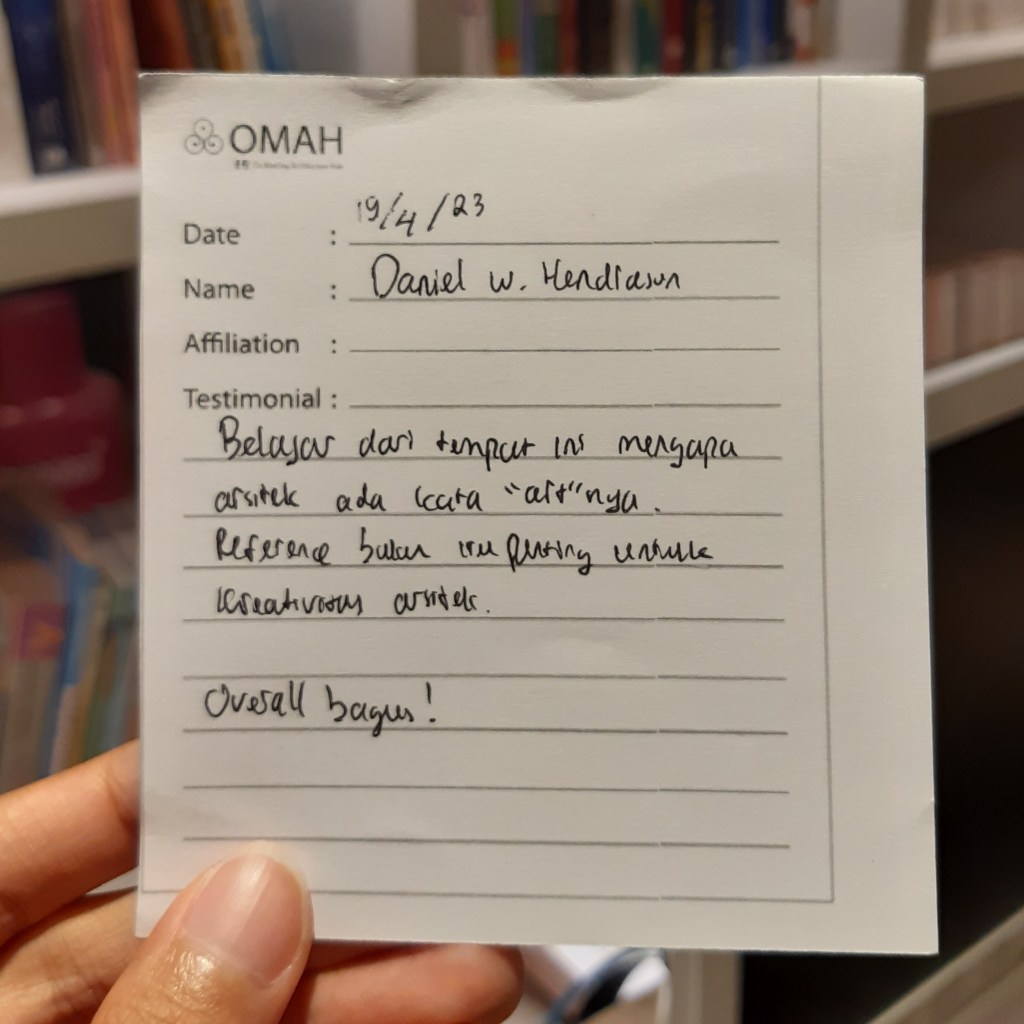 OMAH
Date : 19/4/23
Name : Daniel W. Hendrawan
Affiliation :
Testimonial :
Belajar dari tempat ini mengapa
arsitek ada kata "art"nya.
Reference bukan itu penting untuk
kreativitas arsitek.
Overall bagus!